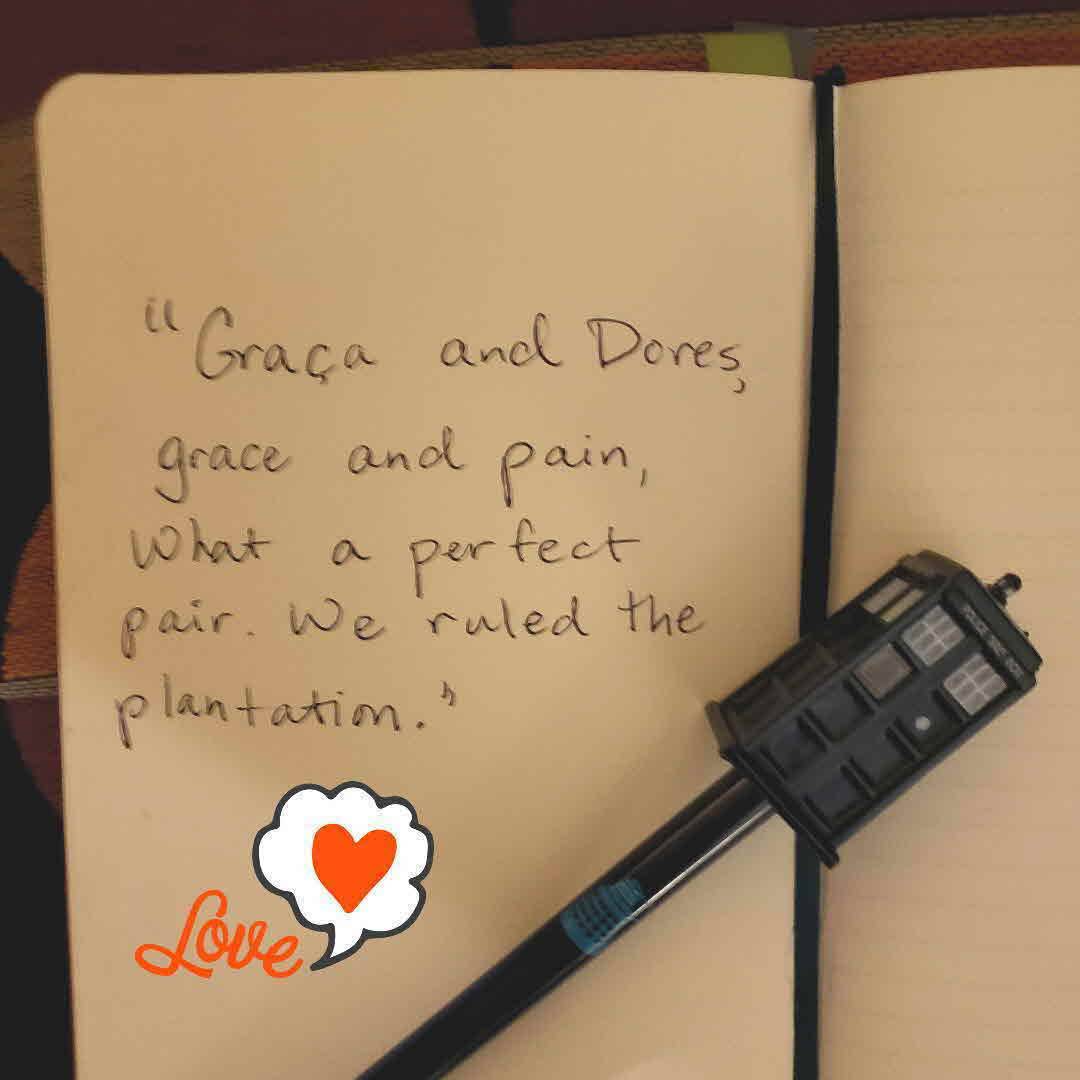 "Graça and Dores,
grace and pain,
What a perfect
pair. We ruled the
plantation."
Love